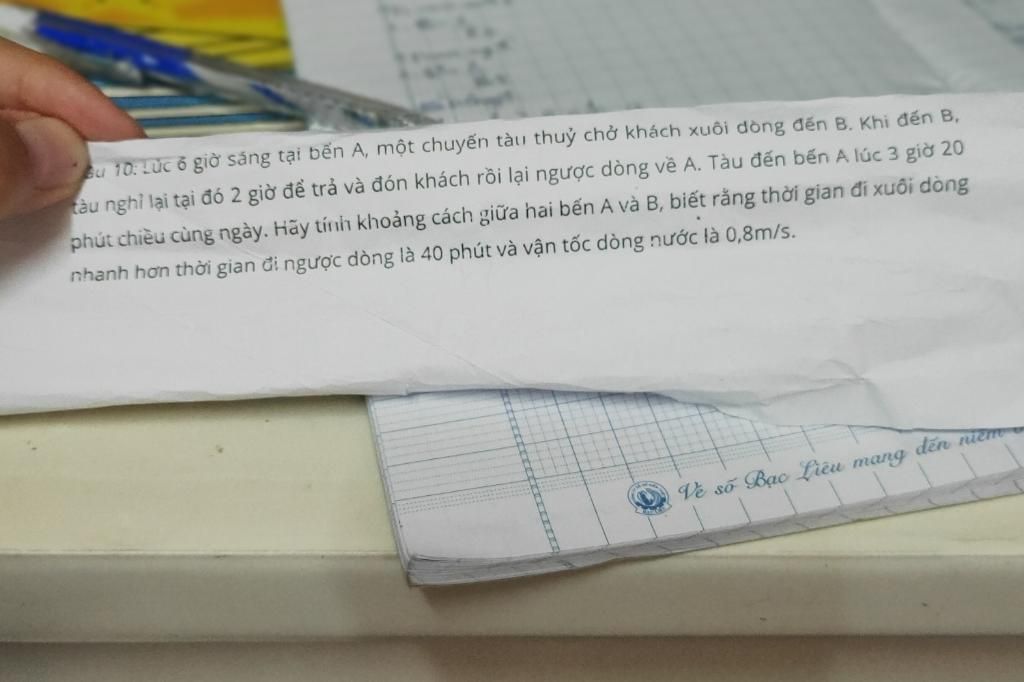 10: Lúc 6 giờ sáng tại bến A, một chuyến tàu thuỷ chở khách xuôi dòng đến B. Khi đến B,
tàu nghỉ lại tại đó 2 giờ để trả và đón khách rồi lại ngược dòng về A. Tàu đến bến A lúc 3 giờ 20
phút chiều cùng ngày. Hãy tính khoảng cách giữa hai bến A và B, biết rằng thời gian đi xuôi dòng
nhanh hơn thời gian đi ngược dòng là 40 phút và vận tốc dòng nước là 0,8m/s.
Vé số Bạc Liêu mang đến niềm